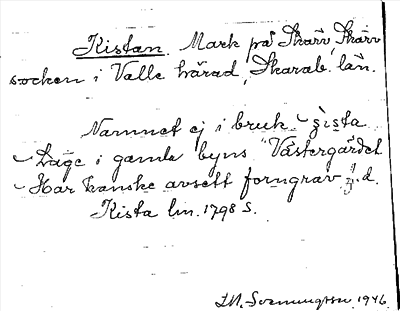 Kistan. Mark på Skärv, Skärv
socken i Valle härad, Skarab. län.
Namnet ej i bruk
Läge i gamla byns "Västergärdet
Har kanske avsett forngrav
Kista lm. 1798 S.
1946.